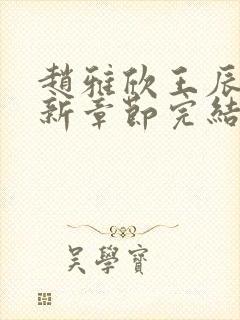 趙雅欣王辰
新章節完結
吳學寶